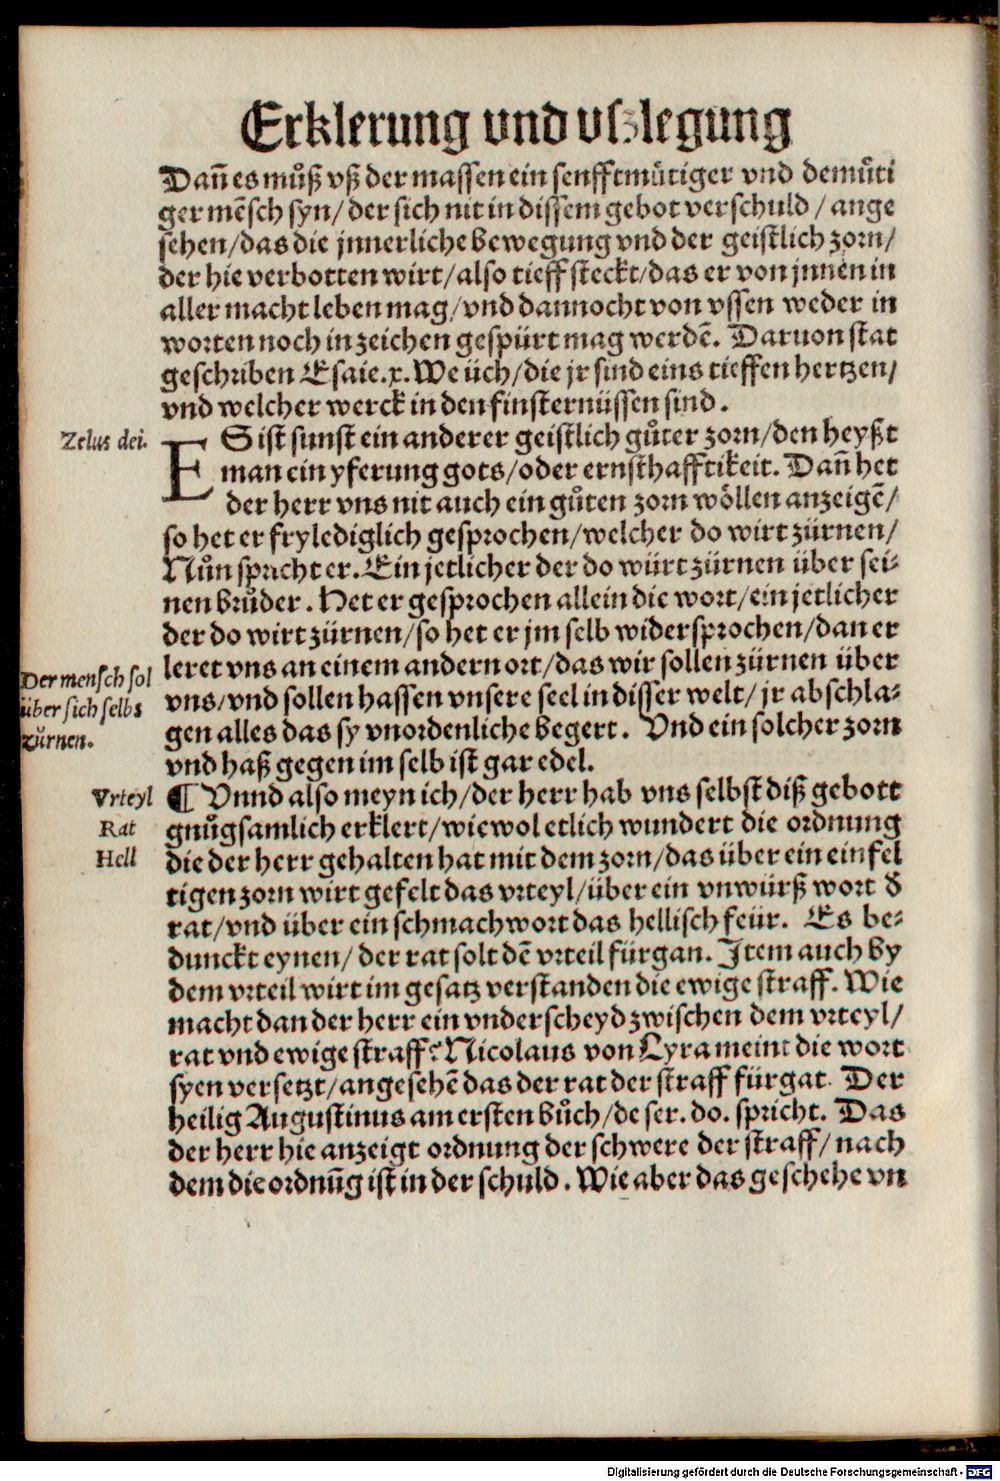 Erklerung vnd vſzlegung
Dañ es můß vß der maſſen ein ſenfftmůtiger vnd demůti
ger mēſch ſyn/ der ſich nit in diſſem gebot verſchuld / ange
ſehen/das die jnnerliche bewegung vnd der geiſtlich zorn/
der hie verbotten wirt/alſo tieff ſteckt/das er von jnnen in
aller macht leben mag/vnd dannocht von vſſen weder in
worten noch in zeichen geſpürt mag werdē. Daruon ſtat
geſchriben Eſaie.x.We üch/die jr ſind eins tieffen hertzen/
vnd welcher werck in den finſternüſſen ſind.
Zelus dei.
ES iſt ſunſt ein anderer geiſtlich gůter zorn/den heyßt
man ein yferung gots/oder ernſthafftikeit. Dañ het
der herr vns nit auch ein gůten zorn wöllen anzeigē/
ſo het er frylediglich geſprochen/welcher do wirt zürnen/
Nůn ſpricht er. Ein jetlicher der do würt zürnen über ſei-
nen brůder. Het er geſprochen allein die wort/ein jetlicher
der do wirt zürnen/ſo het er jm ſelb widerſprochen/dan er
Der menſch ſol
über ſich ſelbs
zürnen.
leret vns an einem andern ort/das wir ſollen zürnen über
vns/vnd ſollen haſſen vnſere ſeel in diſſer welt/ jr abſchla-
gen alles das ſy vnordenliche begert. Vnd ein ſolcher zorn
vnd haß gegen im ſelb iſt gar edel.
Vrteyl
Rat
Hell
¶ Vnnd alſo meyn ich/der herr hab vns ſelbſt diß gebott
gnůgſamlich erklert/wiewol etlich wundert die ordnung
die der herr gehalten hat mit dem zorn/das über ein einfel
tigen zorn wirt gefelt das vrteyl/über ein vnwürß wort ď
rat/vnd über ein ſchmachwort das helliſch feür. Es be-
dunckt eynen/ der rat ſolt dē vrteil fürgan. Item auch by
dem vrteil wirt im geſatz verſtanden die ewige ſtraff. Wie
macht dan der herr ein vnderſcheyd zwiſchen dem vrteyl/
rat vnd ewige ſtraff? Nicolaus von Lyra meint die wort
ſyen verſetzt/angeſehē das der rat der ſtraff fürgat. Der
heilig Auguſtinus am erſten bůch/de ſer. do. ſpricht. Das
der herr hie anzeigt ordnung der ſchwere der ſtraff/ nach
dem die ordnūg iſt in der ſchuld. Wie aber das geſchehe vn
Digitalisierung gefördert durch die Deutsche Forschungsgemeinschaft - DFG